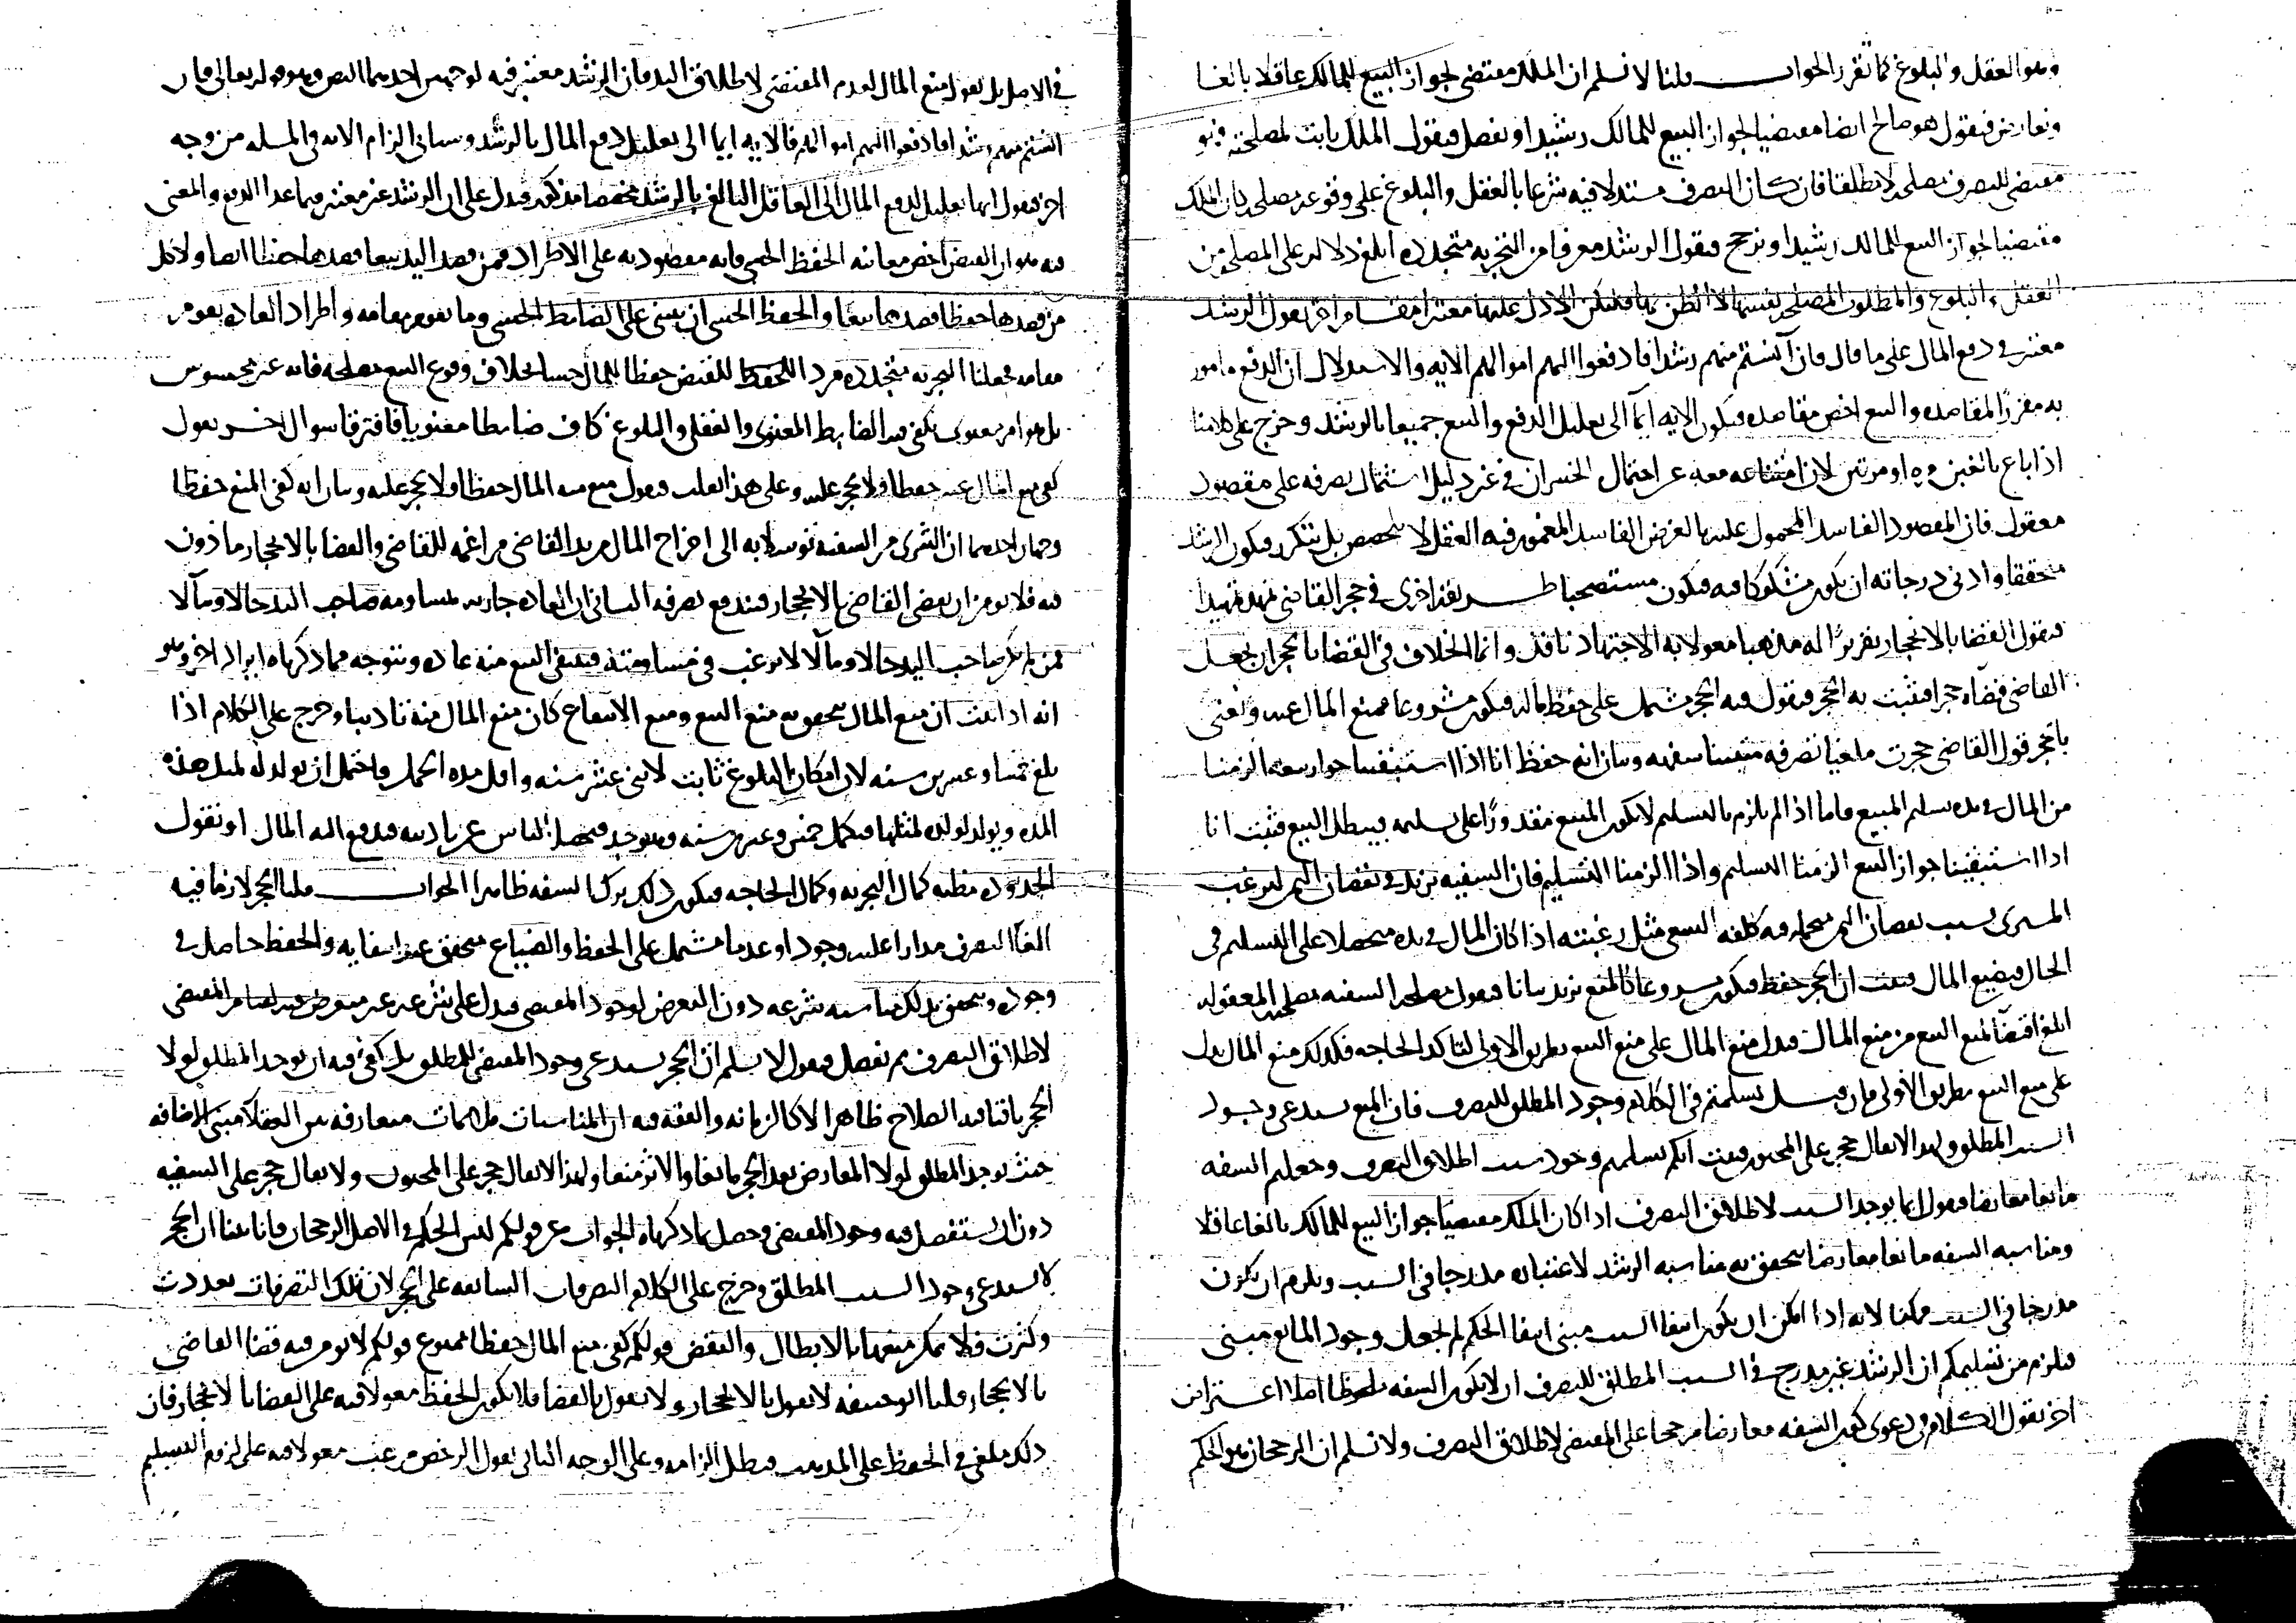 وهو العقل والبلوغ كما تقرر الجواب قلنا لا نسلم ان الملك مقتضى لجواز البيع للمالك عاقلا بالغا
ونعارض فنقول هو صالح ايضا مقتضيا لجواز البيع للمالك رشيدا او نفصل فنقول الملك ثابت لمصلحته وهو
مقتضى للتصرف مصلحة لا مطلقا فان كان التصرف مستدلا فيه شرعا بالعقل والبلوغ على وقوعه مصلحة كان الملك
مقتضيا لجواز البيع للمالك رشيدا او نرجح فنقول الرشد معرفا من التجربه متجدده ابلغ دلاله على المصلحه من
العقل والبلوغ والمطلوب المصلحة نفسها لا الظن بها فليكن الادل عليها معتبرا مقام اخر نقول الرشد
معتبر في دفع المال على ما قال فان آنستم منهم رشدا فادفعوا اليهم اموالهم الايه والاستدلال ان الدفع مامور
به مقررا لمقاصده والبيع اخص مقاصده فيكون الايه ايماً الى تعليل الدفع والبيع جميعا بالرشد وخرج على كلامنا
اذا باع بالغبن مره او مرتين لان امتناعه معه عن احتمال الخسران في غير دليل اشتمال تصرفه على مقصود
معقول فان المقصود الفاسد المحمول عليها لغرض الفاسد المغمور فيه العقل لا يتمحص بل يتكرر فيكون الرشد
متحققا وادنى درجاته ان يكون مشكوكا فيه فيكون مستصحبا طريقة اخرى في حجر القاضي نمهد تمهيدا
فنقول القضا بالانحجار تقريرا له مذهبا معمولا به الاجتهاد نافذ وانما الخلاف في القضا بالحجر ان يجعل
القاضي قضاه حجرا فيثبت به الحجر فنقول فيه الحجر مشتمل على حفظ ماله فيكون مشروعا كمنع المال عنه ونعنى
بالحجر قول القاضي حجرت ملغيا تصرفه متيقنا سفهه وبيان انه حفظ انا اذا استبقينا جواز بيعه الزمنا
من المال في يده تسليم المبيع فاما اذا لم يلزم بالتسليم لا يكون المبيع مقدورا على تسليمه فيبطل البيع فثبت انا
اذا استبقينا جواز البيع الزمنا التسليم واذا الزمنا التسليم فان السفيه يزيد في نقصان الثمن ليرغب
المشترى بسبب نقصان الثمن متحملا فيه كلفه السعي مثل رغبته اذا كان المال في يده متحصلا على التسليم في
الحال فيضيع المال فثبت ان الحجر حفظ فيكون مشروعا كالمنع نزيد بيانا فنقول مصلحة السفيه مصلحته المعقوله
ابلغ اقتضاً لمنع البيع من منع المال فيدل منع المال على منع البيع بطريق الاولى لتاكد الحاجه فكذلك منع المال يدل
على منع البيع بطريق الاولى فان قيل تسلمتم في الكلام وجود المطلق للتصرف فان المنع يستدعى وجود
السبب المطلق ولهذا لا يقال حجر على المجنون فثبت انكم تسلمتم وجود سبب اطلاق التصرف وجعلتم السفه
مانعا معارضا فنقول انما يوجد السبب لاطلاق التصرف اذا كان الملك مقتضيا جواز البيع للمالك بالغا عاقلا
ومناسبه السفه مانعا معارضا يتحقق به مناسبه الرشد لاعتباره مندرجا في السبب ويلزم ان يكون
مندرجا في السبب ممكنا لانه اذا امكن ان يكون انتفا السبب مبنى انتفا الحكم لم يجعل وجود المانع مبنى
فيلزم من تسليمكم ان الرشد غير مندرج في السبب المطلق للتصرف ان لا يكون السفه ملحوظا اصلا اعتراض
اخر نقول الكلام في دعوى كون السفه معارضا مرجحا على المقتضى لاطلاق التصرف ولا نسلم ان الرجحان هو الحكم
في الاصل بل نقول منع المال لعدم المقتضى لاطلاق اليد فان الرشد معتبر فيه لوجهين احدهما النص وهو قوله تعالى فان
انستم منهم رشدا فادفعوا اليهم اموالهم فالايه ايما الى تعليل دفع المال بالرشد وسياتى الزام الايه في المسله من وجه
اخر فنقول انها تعليل لدفع المال الى العاقل البالغ بالرشد مخصصا مذكوره فيدل على ان الرشد غير معتبر فيما عدا الدفع والمعنى
فيه هو ان القبض اخص معانيه الحفظ الحسي فانه مقصود به على الاطراد فمن قصد اليد بيعا قصدها حفظا ايضا ولا كل
من قصدها حفظا قصدها بيعا والحفظ الحسي ان يبنى على الضابط الحسي وما يقوم مقامه واطراد العاده يقوم
مقامه فجعلنا التجربه متجدده مرد الحفظ للقبض حفظا للمال حسا بخلاف وقوع البيع مصلحه فانه غير محسوس
بل هو امر معنوى يكفى فيه الضابط المعنوى والعقل والبلوغ كاف ضابطا معنويا فافترقا سوال اخر نقول
كفى منع المال عنه حفظا فلا يحجر عليه وعلى هذا القلب فنقول منع منه المال حفظا ولا يحجر عليه وبيان انه كفى المنع حفظا
وجهان احدهما ان الشرى من السفيه توسلا به الى اخراج المال من يد القاضى مراغمه للقاضى والقضا بالانحجار ماذون
فيه فلا يومن ان يقضى القاضى بالانحجار فيندفع تصرفه الثانى ان العاده جاريه بمساومه صاحب اليد حالا ومآلا
فمن لم يكن صاحب اليد حالا ومآلا لا يرغب في مساومته فينتفى البيع منه عاده ويتوجه مما ذكرناه ايراد اخر وهو
انه اذا ثبت ان منع المال يتحقق به منع البيع ومنع الانتفاع كان منع المال منه تاديبا وخرج على الكلام اذا
بلغ خمسا وعشرين سنه لان امكان البلوغ ثابت لاثنى عشر سنه واقل مده الحمل فاحتمل ان يولد له لمثل هذه
المده ويولد لولده لمثلها فيكمل خمس وعشرين سنه وهو جد فيحصل الياس عن تاديبه فيدفع اليه المال او نقول
الجدوده مظنه كمال التجربه وكمال الحاجه فيكون ذلك ترك السفه ظاهرا الجواب قلنا الحجر لازما فيه
الغآ التصرف مدارا عليه وجودا وعدما مشتمل على الحفظ والضياع متحقق عند انتفايه والحفظ حاصل في
وجوده ويتحقق بذلك مناسبه شرعه دون التعرض لوجود المقتضى فيدل على شرعه غير متعرض فيه لقيام المقتضى
لاطلاق التصرف ثم نفصل فنقول لا نسلم ان الحجر يستدعى وجود المقتضى المطلق بل كفى فيه ان يوجد المطلق لولا
الحجر باقتنائه الصلاح ظاهرا لا كالزمانه والفقه فيه ان المناسبات ملايمات متعارفه بين العقلآ مبنى الاضافه
حيث يوجد المطلق لولا المعارض يعد الحجر مانعا والاثر منعا ولهذا لا يقال حجر على المجنون ولا يقال حجر على السفيه
دون ان يستفصل فيه وجود المقتضى وحصل بما ذكرناه الجواب عن قولكم ليس الحكم في الاصل الرجحان فانا بينا ان الحجر
لا يستدعى وجود السبب المطلق وخرج على الكلام التصرفات السابقه على الحجر لان تلك التصرفات تعددت
وكثرت فلا يمكن تتبعها بالابطال والنقض قولكم كفى منع المال حفظا ممنوع قولكم لا يومن فيه قضا القاضى
بالانحجار قلنا ابو حنيفه لا يقول بالانحجار ولا يقول بالقضا فلا يكون الحفظ معولا فيه على القضا بالانحجار فان
ذلك ملغى في الحفظ على المذهب فبطل الزامه وعلى الوجه الثانى نقول الرخص مرغب معولا فيه على لزوم التسليم